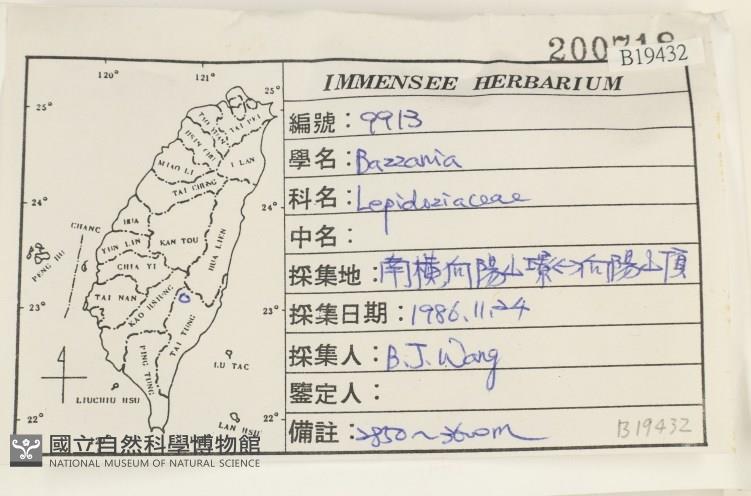 B19432
IMMENSEE HERBARIUM
編號：9913
學名：Bazzania
科名：Lepidoziaceae
中名：
採集地：南橫向陽山 向陽山頂
採集日期：1986.11.24
採集人：B.J. Wang
鑒定人：
備註：2850～3600m
B19432
120°
121°
25°
25°
TAO YUAN
TAI PEI
HSIN CHU
MIAO LI
I LAN
TAI CHUNG
24°
24°
CHANG
HUA
YUN LIN
KAN TOU
HUA LIEN
PENG HU
CHIA YI
TAI NAN
KAO HSIUNG
TAI TUNG
23°
23°
PING TUNG
LU TAO
LIUCHIU HSU
LAN HSU
22°
22°
國立自然科學博物館
NATIONAL MUSEUM OF NATURAL SCIENCE